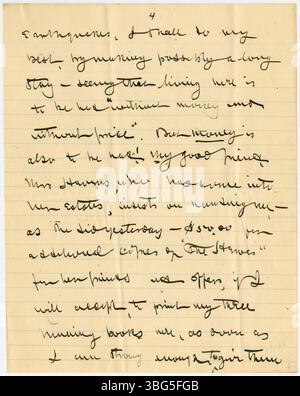 4
Earthquakes, I shall do my
best, by making possibly a long
stay – seeing that living here is
to be had "without money and
without price". But money is
also to be had! My good friend
Mrs Hawes, who has come into
her estates, insists on handing me,
as she did yesterday – $50.00 for
additional copies of "The Heroes"
for her friends and offers, if I
will accept, to print my three
nursing books here, as soon as
I am strong enough to give them
alamy
Image ID: 3BG5FGB
www.alamy.com